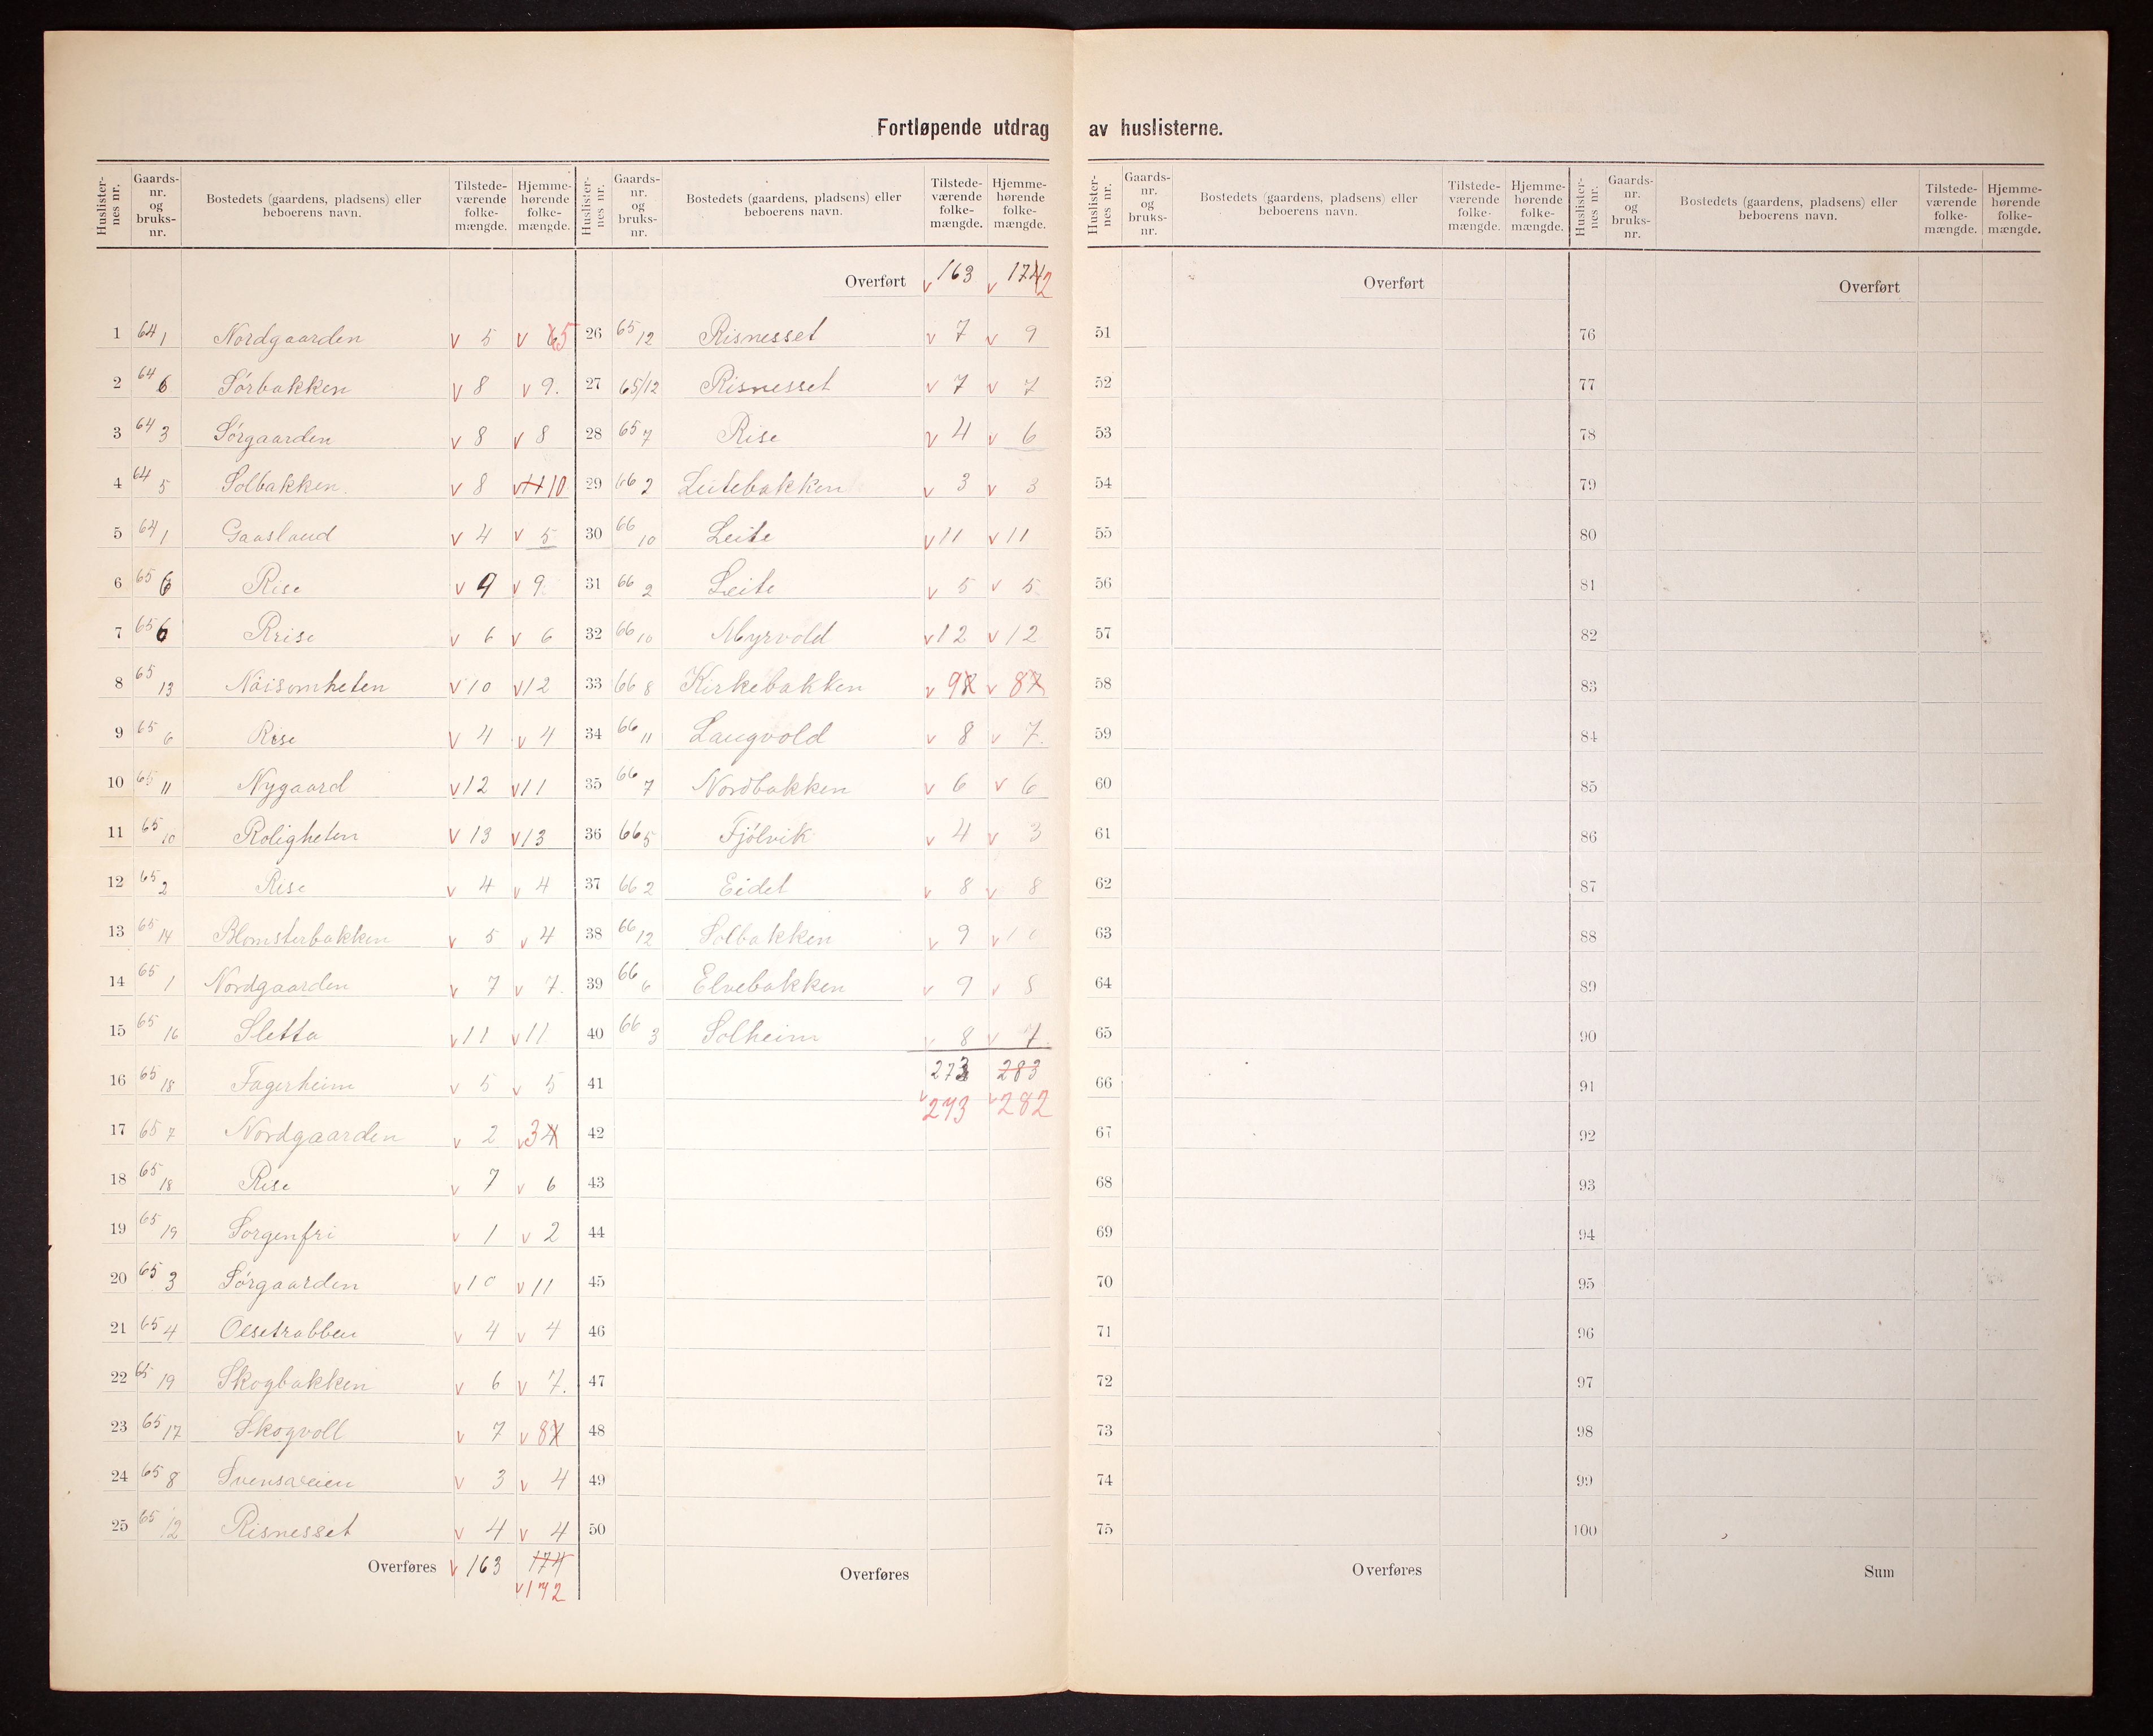 Fortløpende utdrag av huslisterne.
Huslisternes nr. | Gaardsnr. og bruksnr. | Bostedets (gaardens, pladsens) eller beboerens navn. | Tilstedeværende folkemængde. | Hjemmehørende folkemængde.
1 64/1 Nordgaarden v 5 v 6 5
2 64/6 Sørbakken v 8 v 9.
3 64/3 Sørgaarden v 8 v 8
4 64/5 Solbakken. v 8 v 11 10
5 64/1 Gaasland v 4 v 5
6 65/6 Rise v 9 v 9.
7 65/6 Rrise v 6 v 6
8 65/13 Nøisomheten v 10 v 12
9 65/6 Rise v 4 v 4
10 65/11 Nygaard v 12 v 11
11 65/10 Roligheten v 13 v 13
12 65/2 Rise v 4 v 4
13 65/14 Blomsterbakken v 5 v 4
14 65/1 Nordgaarden v 7 v 7.
15 65/16 Sletta v 11 v 11
16 65/18 Fagerheim v 5 v 5
17 65/7 Nordgaarden v 2 v 3 4
18 65/18 Rise v 7 v 6
19 65/19 Sorgenfri v 1 v 2
20 65/3 Sørgaarden v 10 v 11
21 65/4 Olsetrabben v 4 v 4
22 65/19 Skogbakken v 6 v 7.
23 65/17 Skogvoll v 7 v 8 7
24 65/8 Svensveien v 3 v 4
25 65/12 Risnesset v 4 v 4
Overføres v 163 174
v 172
Huslisternes nr. | Gaardsnr. og bruksnr. | Bostedets (gaardens, pladsens) eller beboerens navn. | Tilstedeværende folkemængde. | Hjemmehørende folkemængde.
Overført v 163 v 174 2
26 65/12 Risnesset v 7 v 9
27 65/12 Risnesset v 7 v 7
28 65/7 Rise v 4 v 6
29 66/2 Leitebakken v 3 v 3
30 66/10 Leite v 11 v 11
31 66/2 Leite v 5 v 5
32 66/10 Myrvold v 12 v 12
33 66/8 Kirkebakken v 9 8 v 8 7
34 66/11 Langvold v 8 v 7.
35 66/7 Nordbakken v 6 v 6
36 66/5 Fjølvik v 4 v 3
37 66/2 Eidet v 8 v 8
38 66/12 Solbakken v 9 v 10
39 66/6 Elvebakken v 9 v 8
40 66/3 Solheim v 8 v 7.
273 283
41 v 273 v 282
42
43
44
45
46
47
48
49
50
Overføres
Huslisternes nr. | Gaardsnr. og bruksnr. | Bostedets (gaardens, pladsens) eller beboerens navn. | Tilstedeværende folkemængde. | Hjemmehørende folkemængde.
Overført
51
52
53
54
55
56
57
58
59
60
61
62
63
64
65
66
67
68
69
70
71
72
73
74
75
Overføres
Huslisternes nr. | Gaardsnr. og bruksnr. | Bostedets (gaardens, pladsens) eller beboerens navn. | Tilstedeværende folkemængde. | Hjemmehørende folkemængde.
Overført
76
77
78
79
80
81
82
83
84
85
86
87
88
89
90
91
92
93
94
95
96
97
98
99
100
Sum